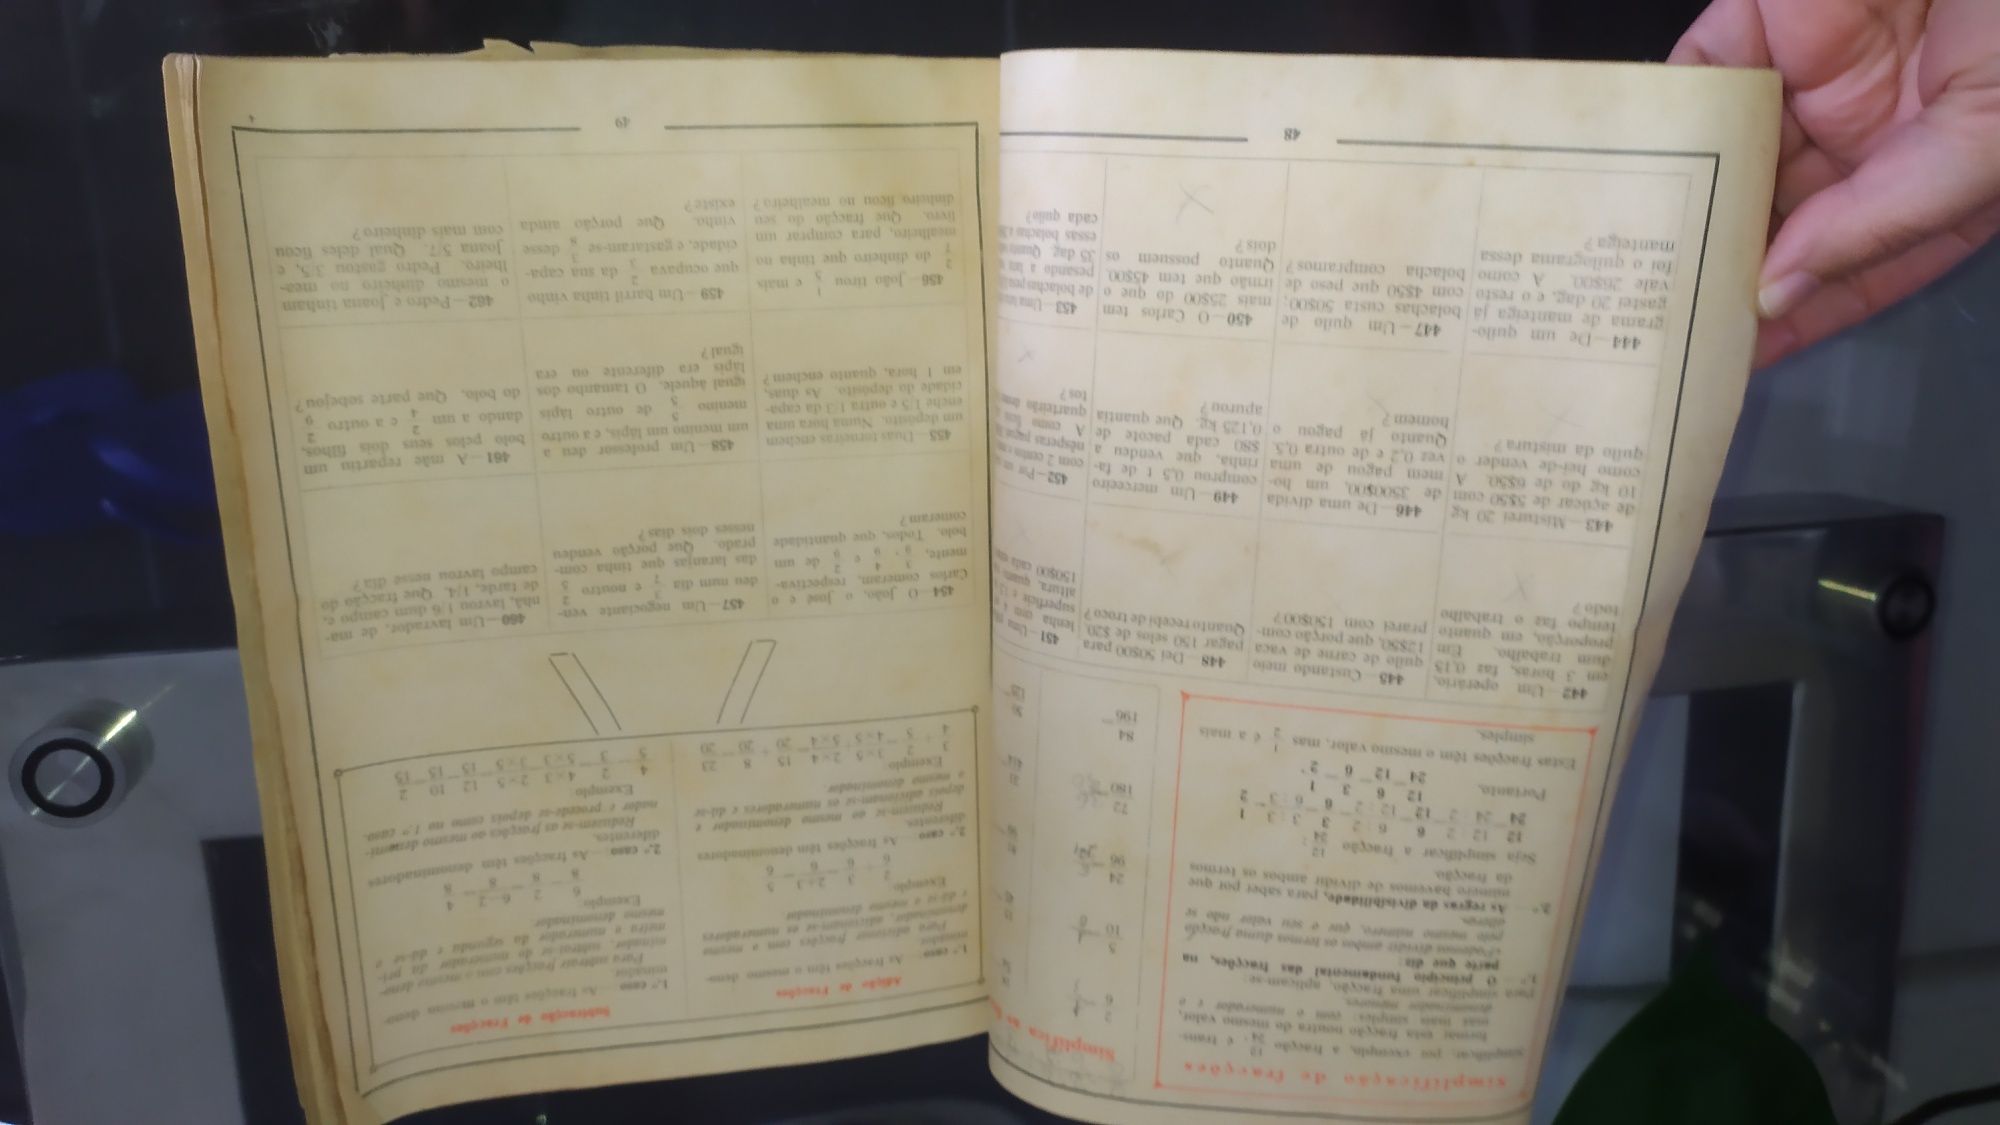 Simplificação de fracções
Simplificar, por exemplo, a fracção 12/24, é trans-
formar esta fracção noutra do mesmo valor,
mas mais simples: com o numerador e o
denominador menores.
Para simplificar uma fracção, aplicam-se:
1.º — O princípio fundamental das fracções, na
parte que diz:
«Podemos dividir ambos os termos duma fracção
pelo mesmo número, que o seu valor não se
altera».
2.º — As regras da divisibilidade, para saber por que
número havemos de dividir ambos os termos
da fracção.
Seja simplificar a fracção 12/24:
12/24 = 12:2/24:2 = 6/12 = 6:2/12:2 = 3/6 = 3:3/6:3 = 1/2
Portanto, 12/24 = 6/12 = 3/6 = 1/2.
Estas fracções têm o mesmo valor, mas 1/2 é a mais
simples.
Simplifica as
2/6
5/10
24/96
72/180
84/196
442 — Um operário,
em 3 horas, faz 0,15
dum trabalho. Em
proporção, em quanto
tempo faz o trabalho
todo?
445 — Custando meio
quilo de carne de vaca
12$50, que porção com-
prarei com 150$00?
448 — Dei 50$00 para
pagar 150 selos de $20.
Quanto recebi de troco?
451 — Uma
lenha com
superfície e
altura,
150$00 cada
443 — Misturei 20 kg
de açúcar de 5$50 com
10 kg do de 6$50. A
como hei-de vender o
quilo da mistura?
446 — De uma dívida
de 3500$00, um ho-
mem pagou de uma
vez 0,2 e de outra 0,5.
Quanto já pagou o
homem?
449 — Um merceeiro
comprou 0,5 t de fa-
rinha, que vendeu a
$80 cada pacote de
0,125 kg. Que quantia
apurou?
452 — Por
com 2 centos
nêsperas
A como
quarteirão
tos?
444 — De um quilo-
grama de manteiga já
gastei 20 dag, e o resto
vale 26$00. A como
foi o quilograma dessa
manteiga?
447 — Um quilo de
bolachas custa 50$00;
com 4$50 que peso de
bolacha compramos?
450 — O Carlos tem
mais 25$00 do que o
irmão que tem 45$00.
Quanto possuem os
dois?
453 — Uma
de bolachas
pesando a
35 dag.
essas bolachas
cada quilo?
48
Adição de Fracções
1.º caso — As fracções têm o mesmo deno-
minador.
Para adicionar fracções com o mesmo
denominador, adicionam-se os numeradores
e dá-se o mesmo denominador.
Exemplo:
2/6 + 3/6 = 2+3/6 = 5/6
2.º caso — As fracções têm denominadores
diferentes.
Reduzem-se ao mesmo denominador e
depois adicionam-se os numeradores e dá-se
o mesmo denominador.
Exemplo:
3/4 + 2/5 = 3×5/4×5 + 2×4/5×4 = 15/20 + 8/20 = 23/20
Subtracção de Fracções
1.º caso — As fracções têm o mesmo deno-
minador.
Para subtrair fracções com o mesmo deno-
minador, subtrai-se do numerador da pri-
meira o numerador da segunda e dá-se o
mesmo denominador.
Exemplo:
6/8 − 2/8 = 6−2/8 = 4/8
2.º caso — As fracções têm denominadores
diferentes.
Reduzem-se as fracções ao mesmo denomi-
nador e procede-se depois como no 1.º caso.
Exemplo:
4/5 − 2/3 = 4×3/5×3 − 2×5/3×5 = 12/15 − 10/15 = 2/15
454 — O João, o José e o
Carlos comeram, respectiva-
mente, 3/9, 4/9 e 2/9 de um
bolo. Todos, que quantidade
comeram?
457 — Um negociante ven-
deu num dia 3/7 e noutro 2/5
das laranjas que tinha com-
prado. Que porção vendeu
nesses dois dias?
460 — Um lavrador, de ma-
nhã, lavrou 1/6 dum campo e,
de tarde, 1/4. Que fracção do
campo lavrou nesse dia?
455 — Duas torneiras enchem
um depósito. Numa hora uma
enche 1/5 e outra 1/3 da capa-
cidade do depósito. As duas,
em 1 hora, quanto enchem?
458 — Um professor deu a
um menino um lápis, e a outro
menino 5/5 de outro lápis
igual àquele. O tamanho dos
lápis era diferente ou era
igual?
461 — A mãe repartiu um
bolo pelos seus dois filhos,
dando a um 2/4 e a outro 2/9
do bolo. Que parte sobejou?
456 — João tirou 1/5 e mais
2/7 do dinheiro que tinha no
mealheiro, para comprar um
livro. Que fracção do seu
dinheiro ficou no mealheiro?
459 — Um barril tinha vinho
que ocupava 2/3 da sua capa-
cidade, e gastaram-se 3/8 desse
vinho. Que porção ainda
existe?
462 — Pedro e Joana tinham
o mesmo dinheiro no mea-
lheiro. Pedro gastou 3/5, e
Joana 5/7. Qual deles ficou
com mais dinheiro?
49
4